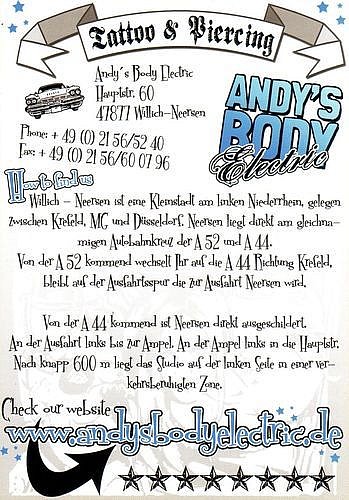 Tattoo & Piercing
Andy´s Body Electric
Hauptstr. 60
47877 Willich-Neersen
ANDY'S
BODY
Electric
Phone: + 49 (0) 21 56/52 40
Fax: + 49 (0) 21 56/60 07 96
How to find us
Willich - Neersen ist eine Kleinstadt am linken Niederrhein, gelegen
zwischen Krefeld, MG und Düsseldorf. Neersen liegt direkt am gleichna-
migen Autobahnkreuz der A 52 und A 44.
Von der A 52 kommend wechselt Ihr auf die A 44 Richtung Krefeld,
bleibt auf der Ausfahrtsspur die zur Ausfahrt Neersen wird.
Von der A 44 kommend ist Neersen direkt ausgeschildert.
An der Ausfahrt links bis zur Ampel. An der Ampel links in die Hauptstr.
Nach knapp 600 m liegt das Studio auf der linken Seite in einer ver-
kehrsberuhigten Zone.
Check our website
www.andysbodyelectric.de